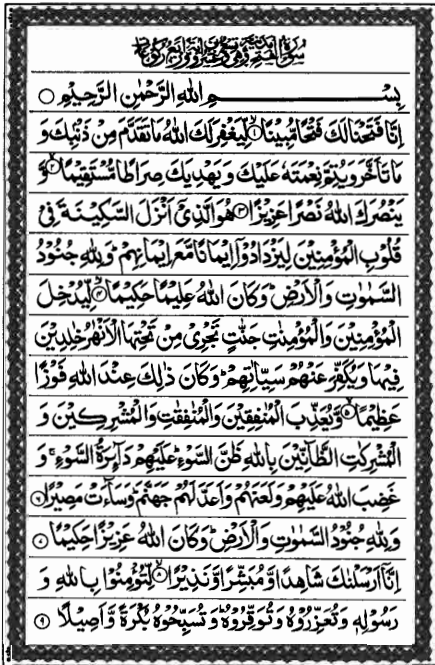 سُوْرَةُ الْفَتْحِ مَدَنِيَّةٌ وَّهِيَ تِسْعٌ وَّعِشْرُوْنَ اٰيَةً وَّاَرْبَعُ رُكُوْعَاتٍ
بِسْمِ اللهِ الرَّحْمٰنِ الرَّحِيْمِ ○
اِنَّا فَتَحْنَا لَكَ فَتْحًا مُّبِيْنًا ۙ۱ لِّيَغْفِرَ لَكَ اللهُ مَا تَقَدَّمَ مِنْ ذَنْۢبِكَ وَ
مَا تَاَخَّرَ وَيُتِمَّ نِعْمَتَهٗ عَلَيْكَ وَيَهْدِيَكَ صِرَاطًا مُّسْتَقِيْمًا ۙ۲ وَّ
يَنْصُرَكَ اللهُ نَصْرًا عَزِيْزًا ۳ هُوَ الَّذِيْٓ اَنْزَلَ السَّكِيْنَةَ فِيْ
قُلُوْبِ الْمُؤْمِنِيْنَ لِيَزْدَادُوْٓا اِيْمَانًا مَّعَ اِيْمَانِهِمْ ؕ وَلِلّٰهِ جُنُوْدُ
السَّمٰوٰتِ وَالْاَرْضِ ؕ وَكَانَ اللهُ عَلِيْمًا حَكِيْمًا ۙ۴ لِّيُدْخِلَ
الْمُؤْمِنِيْنَ وَالْمُؤْمِنٰتِ جَنّٰتٍ تَجْرِيْ مِنْ تَحْتِهَا الْاَنْهٰرُ خٰلِدِيْنَ
فِيْهَا وَيُكَفِّرَ عَنْهُمْ سَيِّاٰتِهِمْ ؕ وَكَانَ ذٰلِكَ عِنْدَ اللهِ فَوْزًا
عَظِيْمًا ۙ۵ وَّيُعَذِّبَ الْمُنٰفِقِيْنَ وَالْمُنٰفِقٰتِ وَالْمُشْرِكِيْنَ وَ
الْمُشْرِكٰتِ الظَّآنِّيْنَ بِاللهِ ظَنَّ السَّوْءِ ؕ عَلَيْهِمْ دَآئِرَةُ السَّوْءِ ۚ وَ
غَضِبَ اللهُ عَلَيْهِمْ وَلَعَنَهُمْ وَاَعَدَّ لَهُمْ جَهَنَّمَ ؕ وَسَآءَتْ مَصِيْرًا ۶
وَلِلّٰهِ جُنُوْدُ السَّمٰوٰتِ وَالْاَرْضِ ؕ وَكَانَ اللهُ عَزِيْزًا حَكِيْمًا ۷
اِنَّآ اَرْسَلْنٰكَ شَاهِدًا وَّمُبَشِّرًا وَّنَذِيْرًا ۙ۸ لِّتُؤْمِنُوْا بِاللهِ وَ
رَسُوْلِهٖ وَتُعَزِّرُوْهُ وَتُوَقِّرُوْهُ ؕ وَتُسَبِّحُوْهُ بُكْرَةً وَّاَصِيْلًا ۹